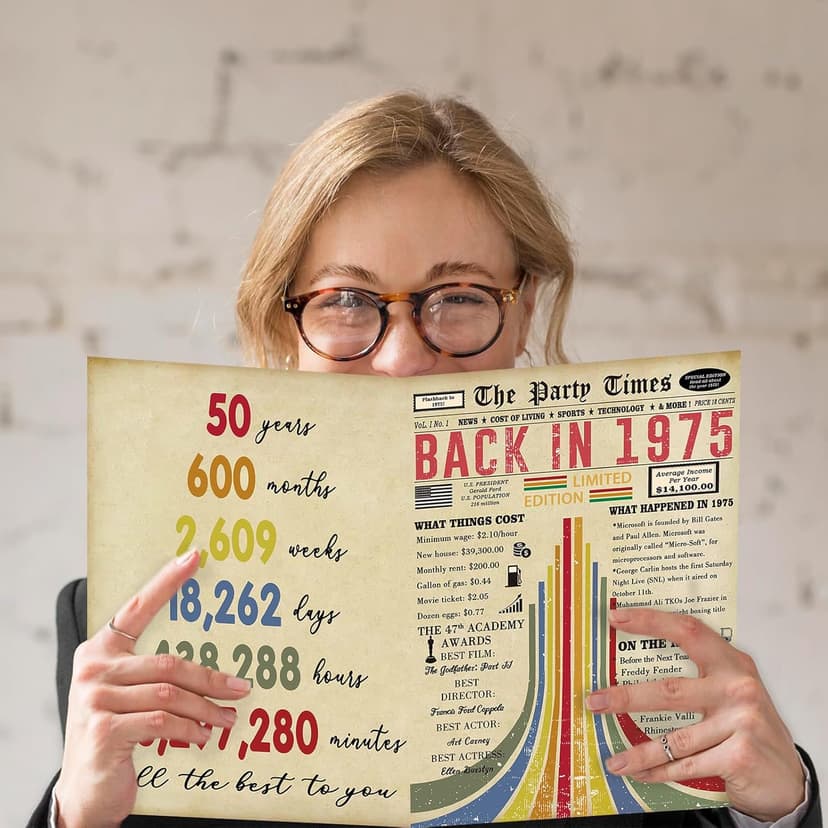 50 years
600 months
2,609 weeks
18,262 days
288 hours
280 minutes
the best to you
Flashback to
1975!
The Party Times
SPECIAL EDITION
Read all about
the year 1975!
VOL. 1 No. 1
NEWS ★ COST OF LIVING ★ SPORTS ★ TECHNOLOGY ★ & MORE!
PRICE 18 CENTS
BACK IN 1975
U.S. PRESIDENT
Gerald Ford
U.S. POPULATION
216 million
LIMITED
EDITION
Average Income
Per Year
$14,100.00
WHAT THINGS COST
Minimum wage: $2.10/hour
New house: $39,300.00
Monthly rent: $200.00
Gallon of gas: $0.44
Movie ticket: $2.05
Dozen eggs: $0.77
THE 47th ACADEMY
AWARDS
BEST FILM:
The Godfather: Part II
BEST
DIRECTOR:
Francis Ford Coppola
BEST ACTOR:
Art Carney
BEST ACTRESS:
Ellen Burstyn
WHAT HAPPENED IN 1975
*Microsoft is founded by Bill Gates
and Paul Allen. Microsoft was
originally called "Micro-Soft", for
microprocessors and software.
*George Carlin hosts the first Saturday
Night Live (SNL) when it aired on
October 11th.
*Muhammad Ali TKOs Joe Frazier in
boxing title
ON THE
Before the Next
- Freddy Fender
- Frankie Valli